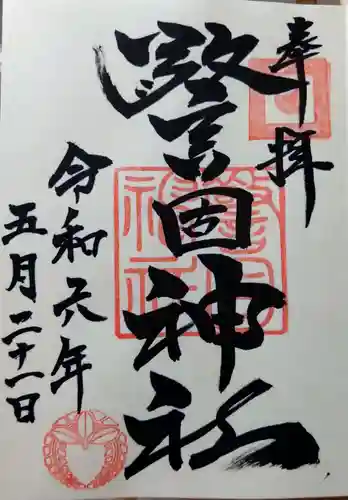 奉拝
警固神社
令和元年
五月二十一日